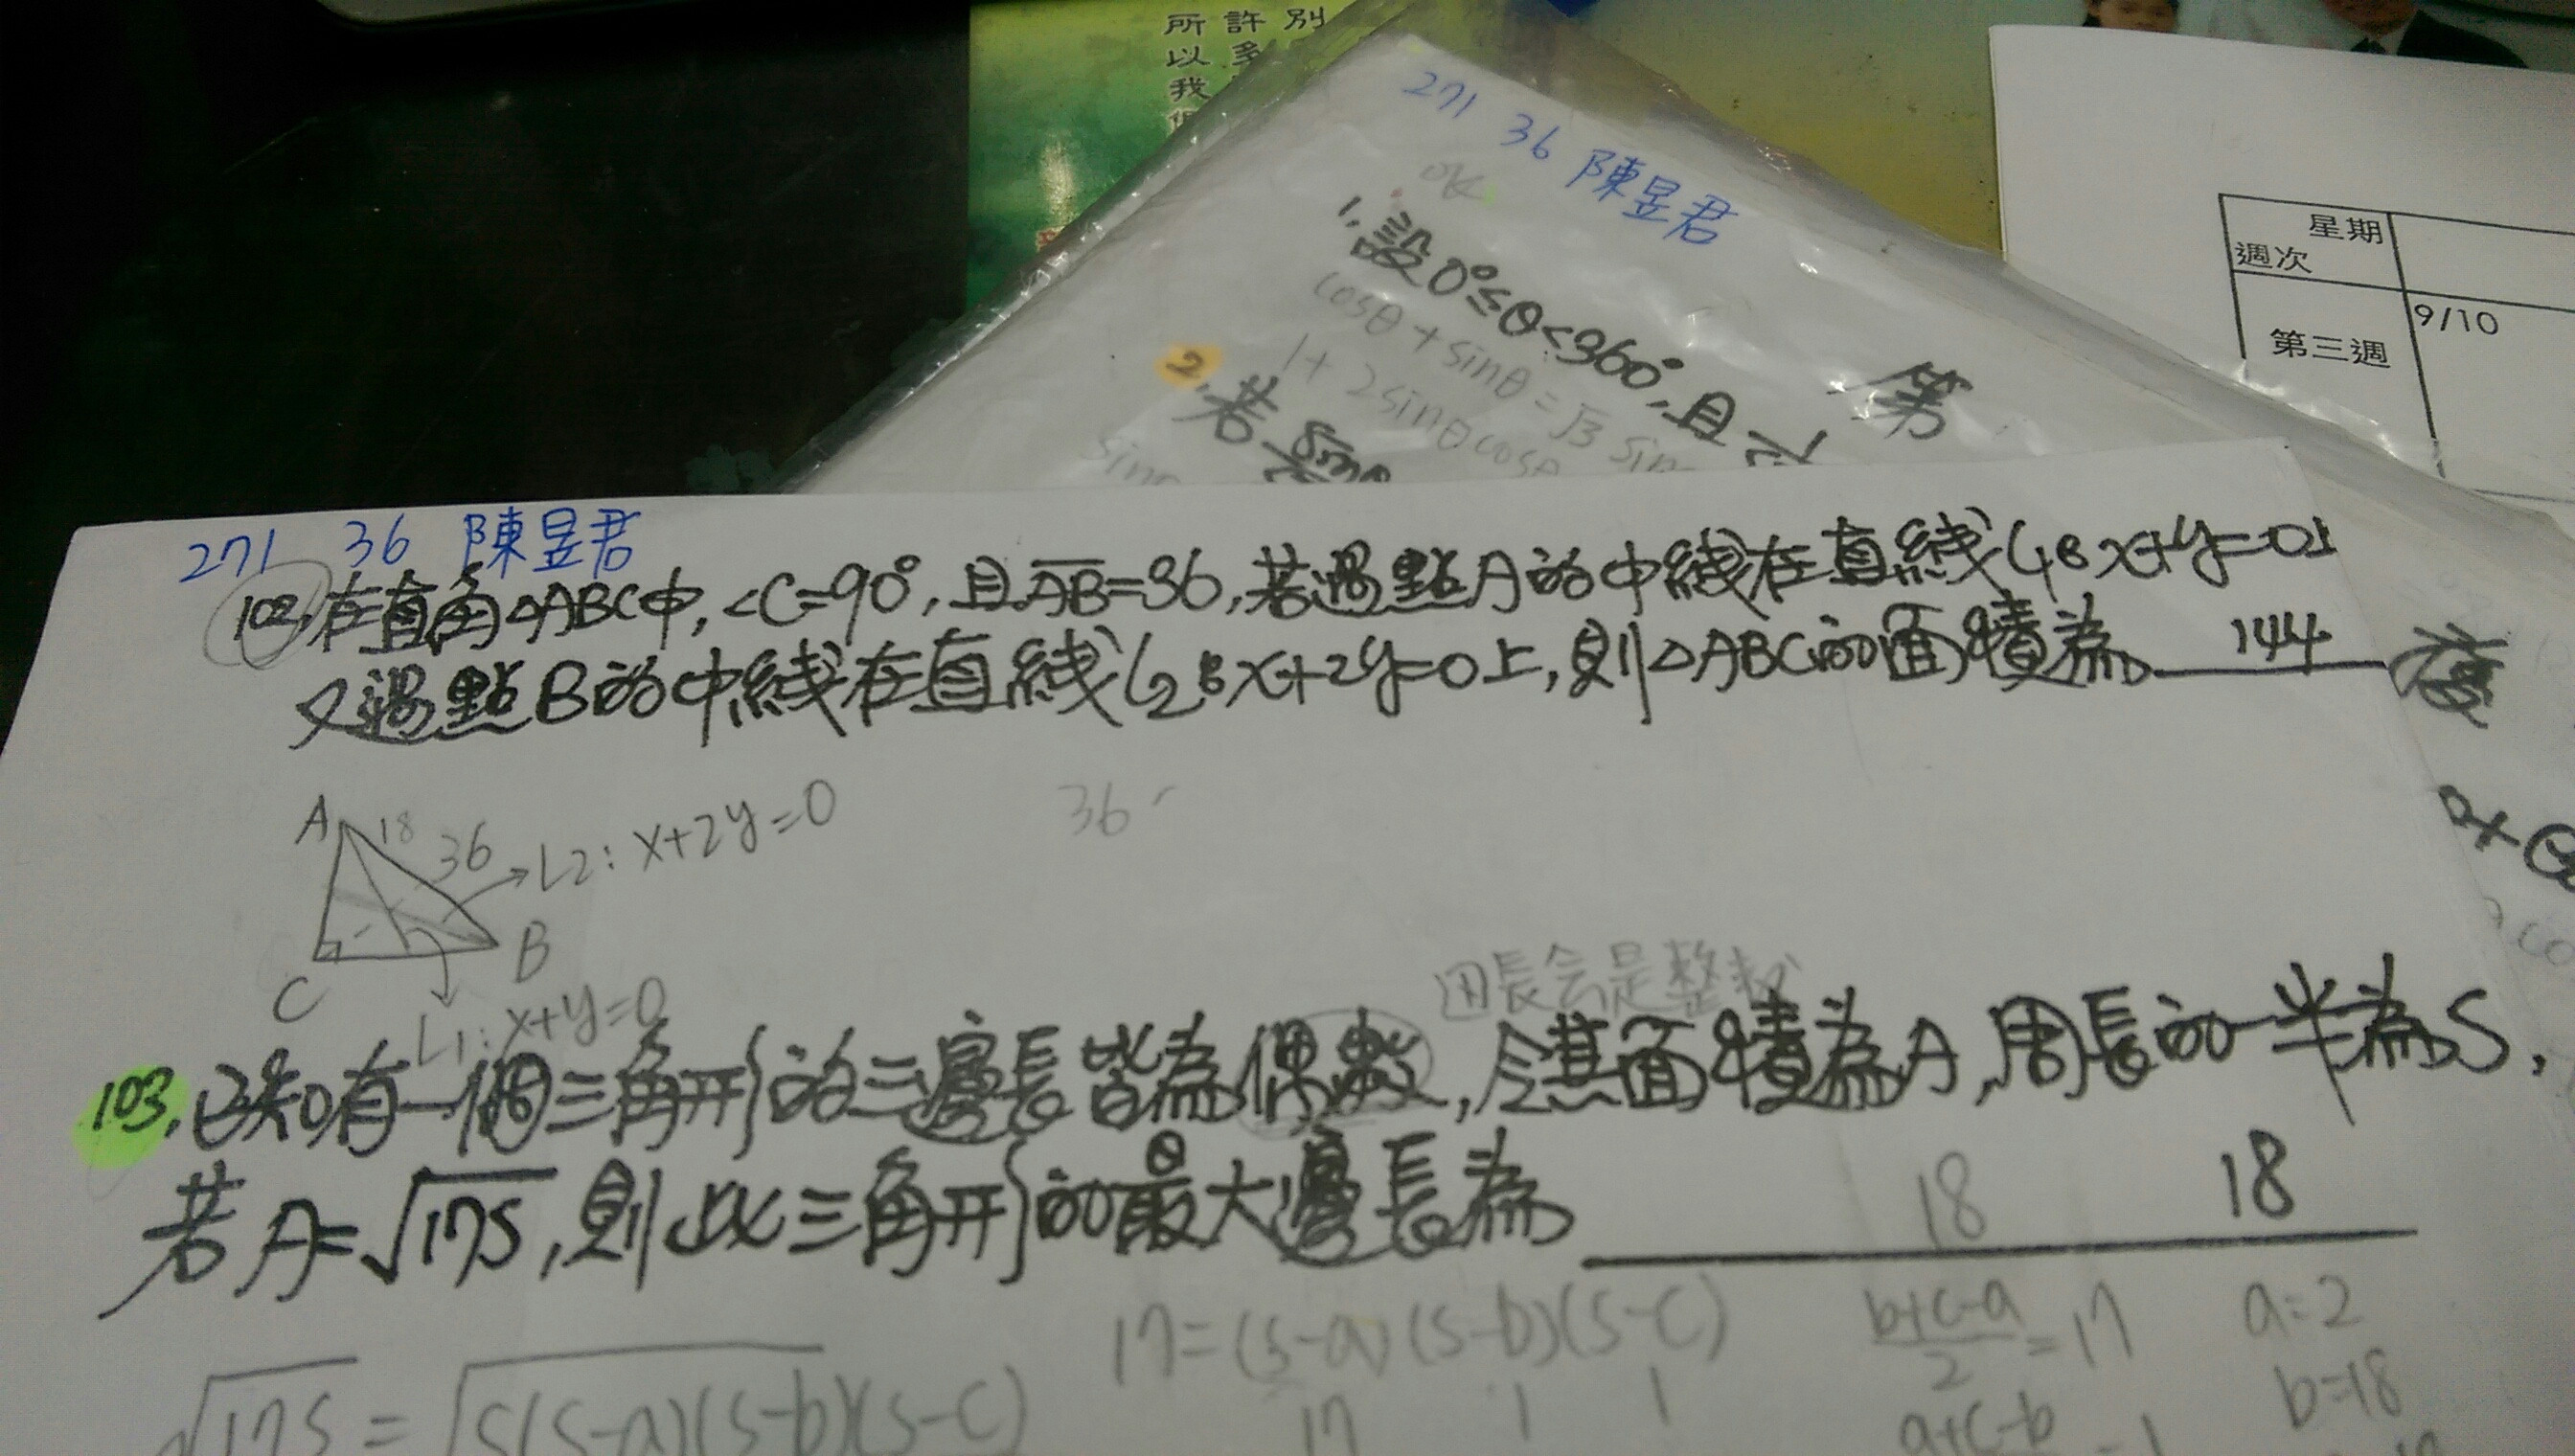 所 許 別
以 多
我
271 36 陳昱君
ok
1.設0°≤θ<360°,且
cosθ+sinθ=√3 sin
1+2sinθcosθ
2.若
第
星期
週次
9/10
第三週
271 36 陳昱君
102.在直角△ABC中,∠C=90°,且AB=36,若過點A的中線在直線L1:x+y=0上
又過點B的中線在直線L2:x+2y=0上,則△ABC的面積為 144
A 18 36
L2:x+2y=0
36
C B
L1:x+y=0
周長会是整数
103.已知有一個三角形的三邊長皆為偶數,令其面積為A,周長的一半為S,
若A=√17S,則此三角形的最大邊長為 18 18
17=(s-a)(s-b)(s-c)
17 1 1
b+c-a/2=17
a=2
b=18
√17S=√S(S-a)(S-b)(S-c)
a+c-b